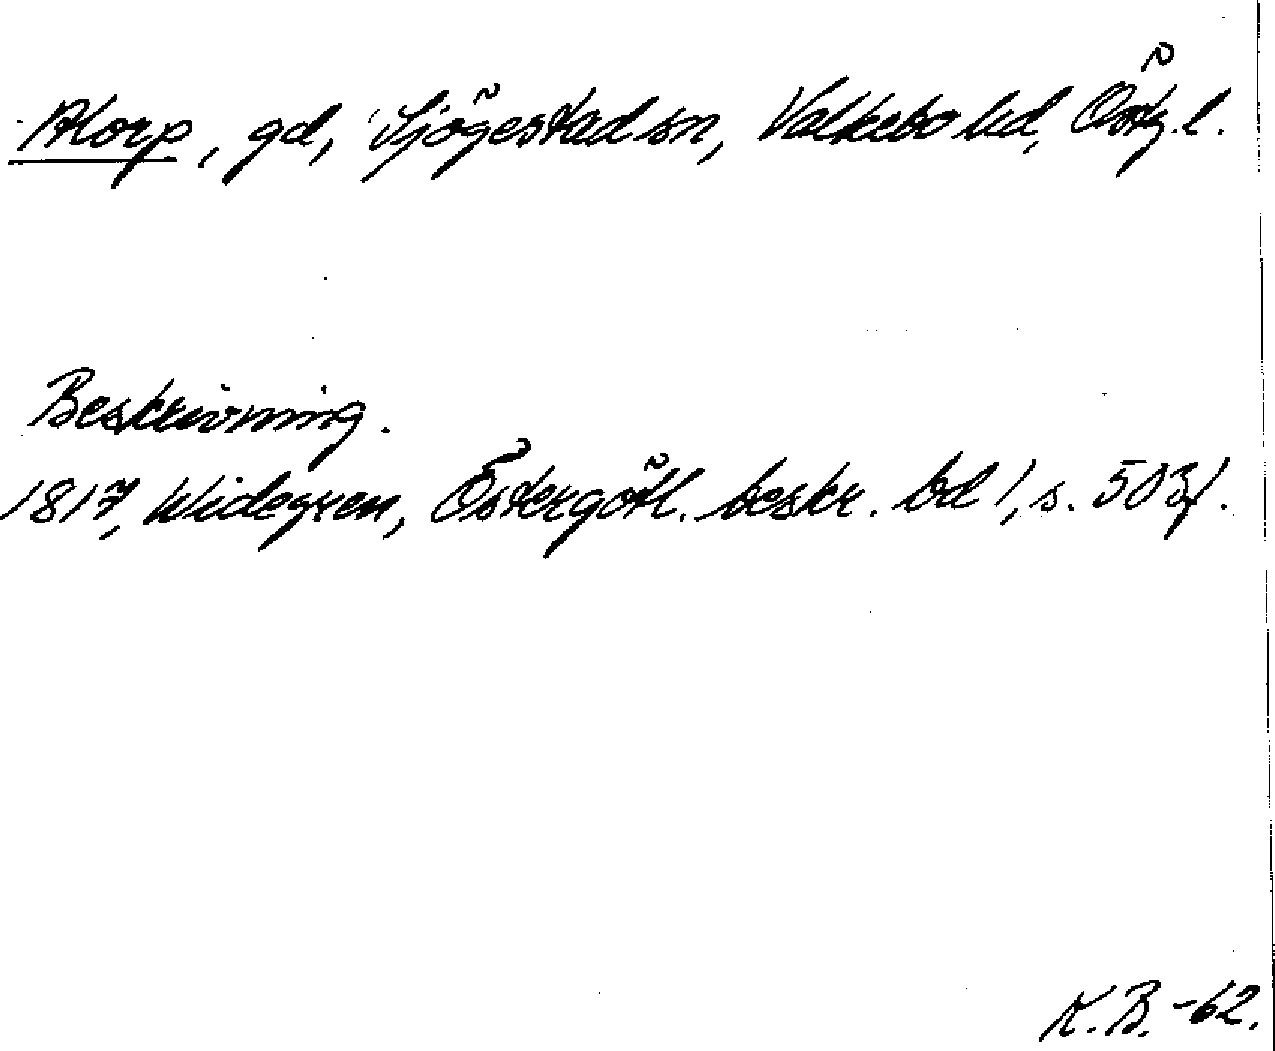 Atorp, gd, Sjögestad sn, Valkebo hd, Östg.l.
Beskrivning.
1817, Widegren, Östergötl. beskr. bd 1, s. 503f.
K.B. -62.